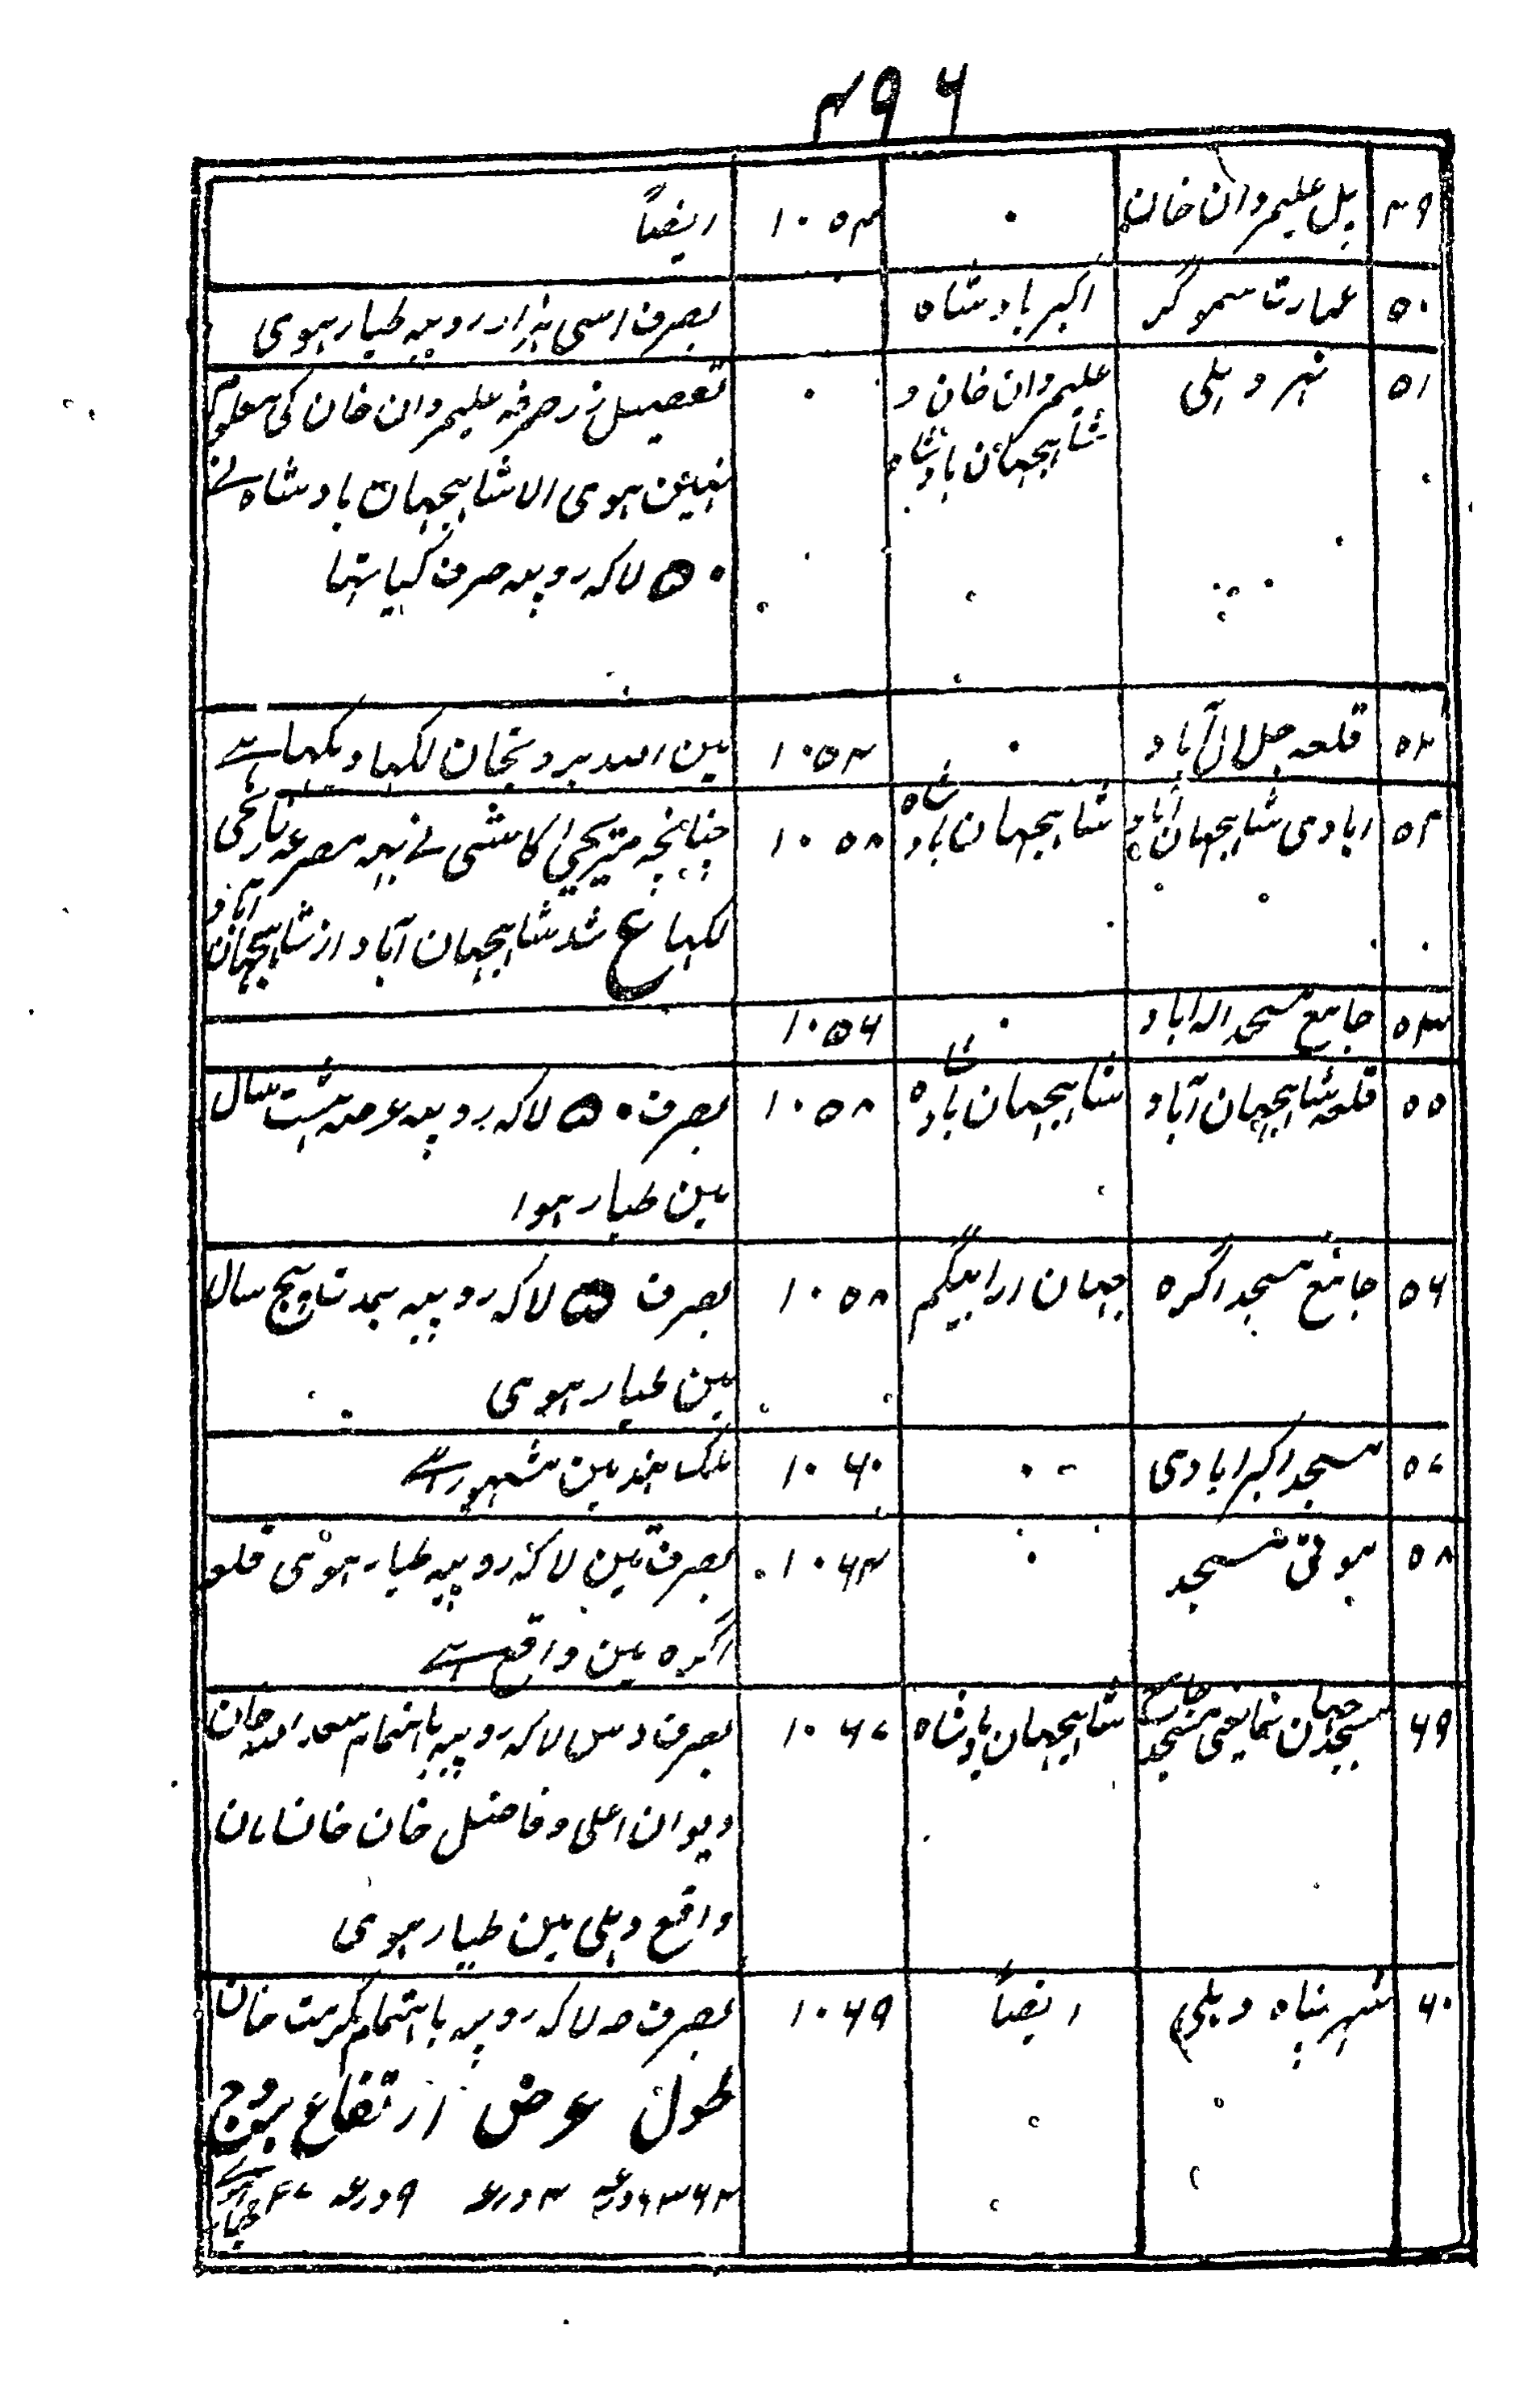 ۴۹۶
۴۹ پل علیمردان خان ۰ ۱۰۵۴ ایضاً
۵۰ عمارت سموگر اکبر بادشاه بصرف اسی ہزار روپیہ طیار ہوی
۵۱ نہر دہلی علیمردان خان و ۰ تفصیل زر صرفہ علیمردان خان کی معلوم
شاہجہان بادشاہ نہین ہوی الا شاہجہان بادشاہ نے
۵۰ لاکہ روپیہ صرف کیا تہا
۵۲ قلعہ جلال آباد ۰ ۱۰۵۴ مین دیکہا ہے
۵۳ ابادی شاہجہان آباد شاہجہان بادشاہ ۱۰۵۸ چنانچہ میر یحیی کاشی نے یہہ مصرعہ تاریخی
لکہا ع شد شاہجہان آباد از شاہجہان آباد
۵۴ جامع مسجد الہ اباد ۰ ۱۰۵۶
۵۵ قلعہ شاہجہان آباد شاہجہان بادشاہ ۱۰۵۸ بصرف ۵۰ لاکہ روپیہ عرصہ ہشت سال
مین طیار ہوا
۵۶ جامع مسجد اگرہ جہان ارا بیگم ۱۰۵۸ بصرف ۵ لاکہ روپیہ بمدت پنج سال
مین طیار ہوی
۵۷ مسجد اکبرابادی ۰ ۱۰۶۰ ملک ہند مین مشہور ہے
۵۸ موتی مسجد ۰ ۱۰۶۴ بصرف تین لاکہ روپیہ طیار ہوئی قلعہ
اگرہ مین واقع ہے
۶۹ مسجد جہان نما یعنی جامع مسجد شاہجہان بادشاہ ۱۰۶۷ بصرف دس لاکہ روپیہ باہتمام سعد اللہ خان
دیوان اعلی و فاضل خان خانسامان
واقع دہلی مین طیار ہوی
۶۰ شہر پناہ دہلی ایضاً ۱۰۶۹ بصرف لاکہ روپیہ باہتمام مکرمت خان
طول عرض ارتفاع بروج
۶۳۶۴ درعہ ۴ درعہ ۹ درعہ ۲۷